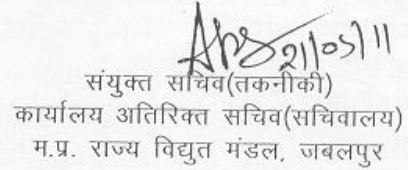 21/05/11
संयुक्त सचिव(तकनीकी)
कार्यालय अतिरिक्त सचिव(सचिवालय)
म.प्र. राज्य विद्युत मंडल, जबलपुर